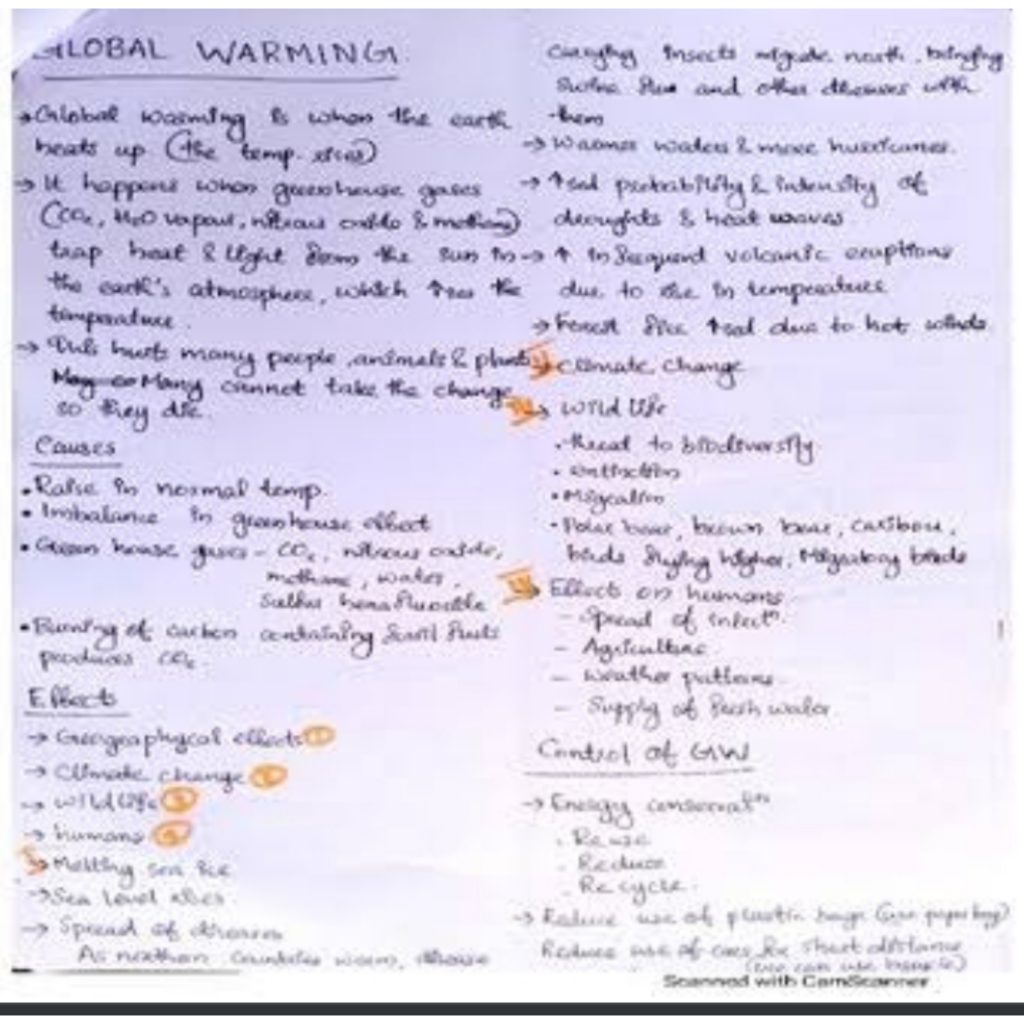 GLOBAL WARMING
→ Global warming is when the earth
heats up (the temp. rises)
→ It happens when greenhouse gases
(CO₂, H₂O vapour, nitrous oxide & methane)
trap heat & light from the sun in
the earth's atmosphere, which ↑ses the
temperature.
→ This hurts many people, animals & plants
Many cannot take the change
so they die.
Causes
• Raise in normal temp.
• Imbalance in greenhouse effect
• Green house gases - CO₂, nitrous oxide,
methane, water,
sulfur hexafluoride
• Burning of carbon containing fossil fuels
produces CO₂.
Effects
→ Geographycal effects ①
→ Climate change ②
→ wild life ③
→ humans ④
→ Melting sea ice
→ Sea level rises
→ Spread of diseases
As northern countries warm, disease
carrying insects migrate north, bringing
Swine flue and other diseases with
them
→ Warmer waters & more hurricanes.
→ ↑sed probability & intensity of
droughts & heat waves
→ ↑ in volcanic eruptions
due to rise in temperature
→ Forest fire ↑sed due to hot winds.
→ climate change
→ wild life
• threat to biodiversity
• extinction
• Migration
• Polar bear, brown bear, caribou,
birds flying higher, Migratory birds
→ Effects on humans
- Spread of infectⁿ.
- Agriculture
- weather patterns
- Supply of fresh water
Control of GW
→ Energy conservatⁿ
. Re use
. Reduce
. Re cycle.
→ Reduce use of plastic bags (use paper bag)
Reduce use of cars for short distance
(we can use bicycle)
Scanned with CamScanner